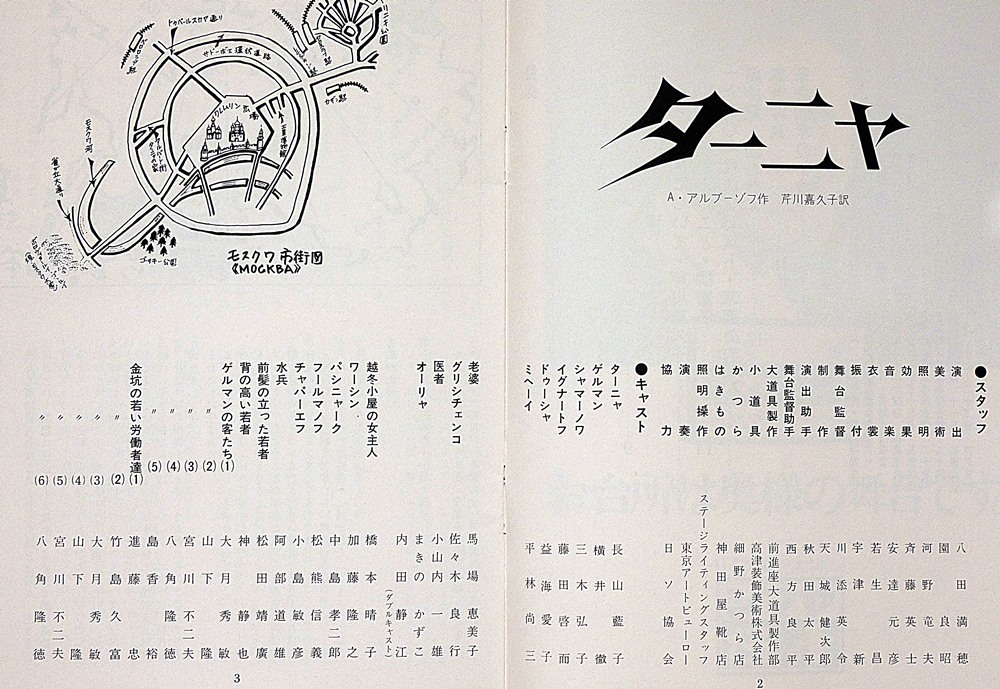 ターニャ
A・アルブーゾフ作 芹川嘉久子訳
●スタッフ
演出 八田満穂
美術 園良昭
照明 河野竜夫
効果 斉藤英士
音楽 安達元彦
衣裳 若生昌
振付 宇津新
舞台監督 川添英令
制作 天城健次郎
演出助手 秋田太平
舞台監督助手 西方良平
大道具製作 前進座大道具製作部
小道具 高津装飾美術株式会社
かつら 細野かつら店
はきもの 神田屋靴店
照明操作 ステージライティングスタッフ
演奏 東京アートビューロー
協力 日ソ協会
●キャスト
ターニャ 長山藍子
ゲルマン 横井徹
シャマーノワ 三木弘子
イグナートフ 藤田啓而
ドゥーシャ 益海愛子
ミヘーイ 平林尚三
2
トゥベールスカヤ通り
サドーボエ環状道路
クレムリン広場
カザン駅
アルバート街
ターニャの家
モスクワ河
雀ヶ丘大通り
ゴーリキー公園
モスクワ市街図
《МОСКВА》
老婆 馬場恵美子
グリシチェンコ 佐々木良行
医者 小山内一雄
オーリャ まきのかずこ
内田静江
(ダブルキャスト)
越冬小屋の女主人 橋本晴子
ワーシン 加藤隆之
パシニャーク 中島孝二郎
フールマノフ 松熊信義
チャパーエフ 小島敏彦
水兵 阿部道雄
前髪の立った若者 松田靖廣
背の高い若者 神静也
ゲルマンの客たち(1) 大月秀敏
〃 (2) 山下隆
〃 (3) 宮川不二夫
〃 (4) 八角隆徳
〃 (5) 島香裕
金坑の若い労働者達(1) 進藤忠
〃 (2) 竹島久富
〃 (3) 大月秀敏
〃 (4) 山下隆
〃 (5) 宮川不二夫
〃 (6) 八角隆徳
3